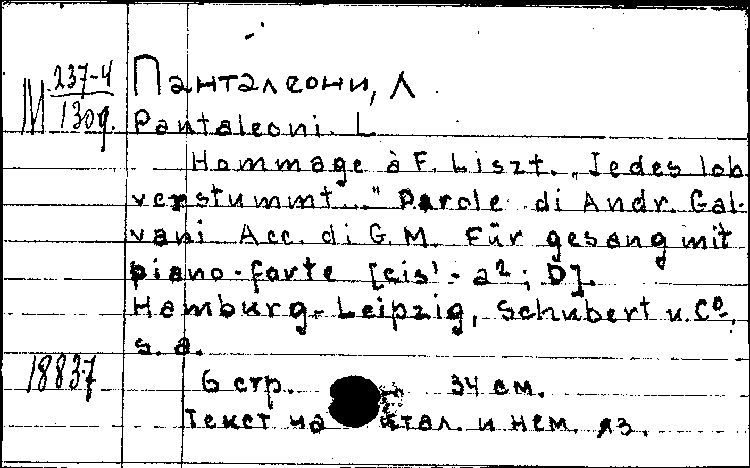 М 237-4
130д.
Панталеони, Л
Pantaleoni. L
Hommage à F. Liszt. "Jedes lob
verstummt..." Parole di Andr. Gal-
vani Acc. di G. M. Für gesang mit
piano-forte [cis¹-a²; D].
Hamburg-Leipzig, Schubert u. Cº,
s. a.
18837
6 стр. 34 см.
Текст на итал. и нем. яз.